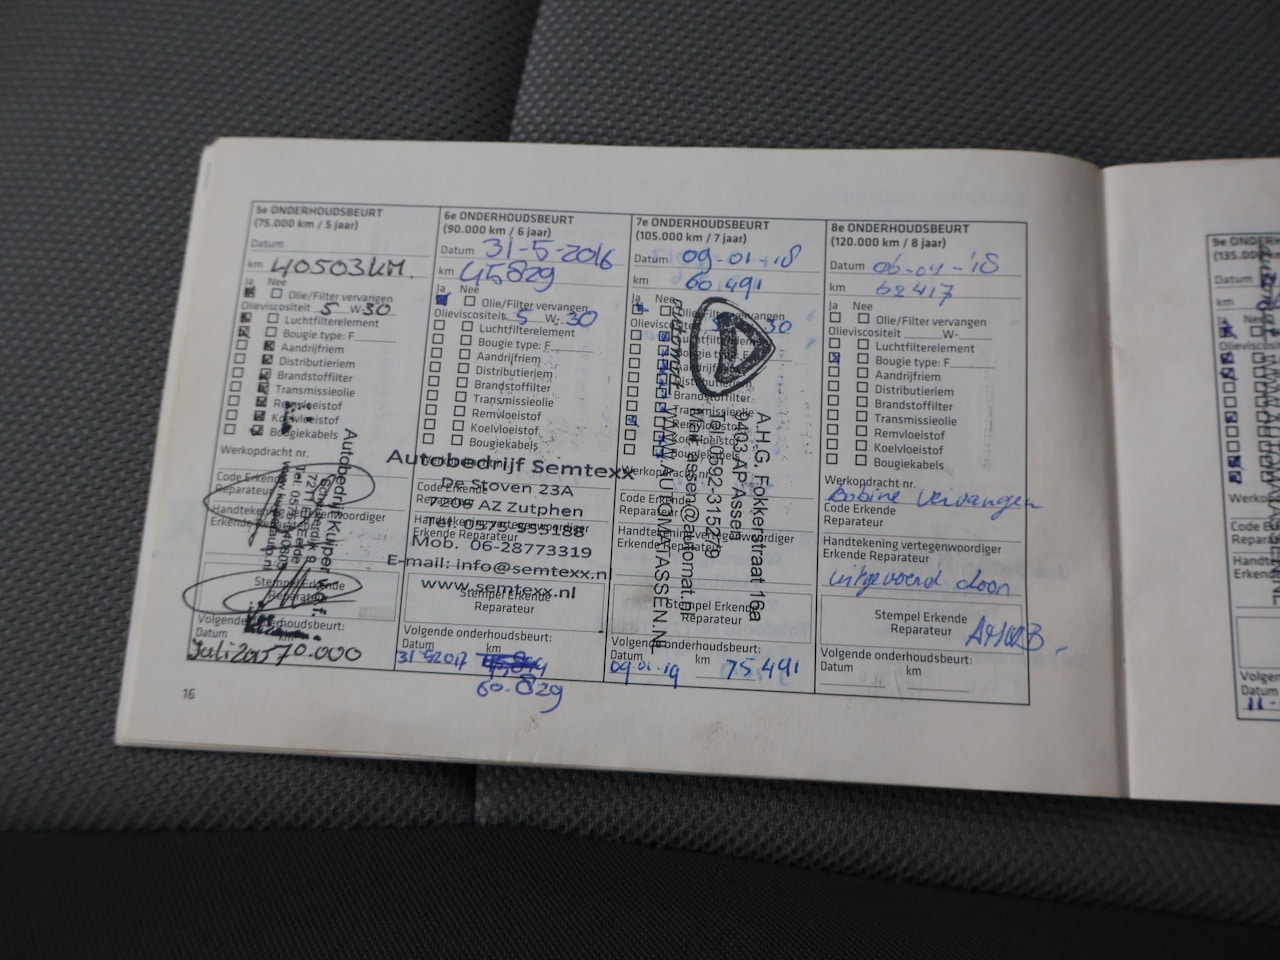 5e ONDERHOUDSBEURT
(75.000 km / 5 jaar)
Datum
km 40503KM.
Ja Nee
Olie/Filter vervangen
Olieviscositeit 5 W-30
Luchtfilterelement
Bougie type: F
Aandrijfriem
Distributieriem
Brandstoffilter
Transmissieolie
Remvloeistof
Koelvloeistof
Bougiekabels
Werkopdracht nr.
Code Erkende
Reparateur
Handtekening vertegenwoordiger
Erkende Reparateur
Autobedrijf Kuiper
Stempel Erkende
Reparateur
Volgende onderhoudsbeurt:
Datum km
70.000
6e ONDERHOUDSBEURT
(90.000 km / 6 jaar)
Datum 31-5-2016
km 45829
Ja Nee
Olie/Filter vervangen
Olieviscositeit 5 W-30
Luchtfilterelement
Bougie type: F
Aandrijfriem
Distributieriem
Brandstoffilter
Transmissieolie
Remvloeistof
Koelvloeistof
Bougiekabels
Autobedrijf Semtexx
De Stoven 23A
7206 AZ Zutphen
Tel. 0575-555188
Mob. 06-28773319
E-mail: info@semtexx.nl
www.semtexx.nl
Code Erkende
Reparateur
Handtekening vertegenwoordiger
Erkende Reparateur
Stempel Erkende
Reparateur
Volgende onderhoudsbeurt:
Datum km
31 5 2017
60.829
7e ONDERHOUDSBEURT
(105.000 km / 7 jaar)
Datum 09-01-18
km 60 491
Ja Nee
Olie/Filter vervangen
Olieviscositeit 30
Luchtfilterelement
Bougie type: F
Aandrijfriem
Distributieriem
Brandstoffilter
Transmissieolie
Remvloeistof
Koelvloeistof
Bougiekabels
Werkopdracht nr.
A.H.G. Fokkerstraat 16a
9403 AP Assen
Tel. 0592-315279
WWW.AUTOMATASSEN.NL
Code Erkende
Reparateur
Handtekening vertegenwoordiger
Erkende Reparateur
Stempel Erkende
Reparateur
Volgende onderhoudsbeurt:
Datum km
09-01-19 75 491
8e ONDERHOUDSBEURT
(120.000 km / 8 jaar)
Datum 06-04-'18
km 62417
Ja Nee
Olie/Filter vervangen
Olieviscositeit W-
Luchtfilterelement
Bougie type: F
Aandrijfriem
Distributieriem
Brandstoffilter
Transmissieolie
Remvloeistof
Koelvloeistof
Bougiekabels
Werkopdracht nr.
Bobine vervangen
Code Erkende
Reparateur
Handtekening vertegenwoordiger
Erkende Reparateur
uitgevoerd door
Stempel Erkende
Reparateur
Volgende onderhoudsbeurt:
Datum km
16
9e
(135.0
Datum
km
Ja
Olievis
Code E
Repara
Handte
Erkend
Volgen
Datum
11-